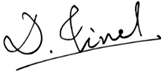 D. Kinel.